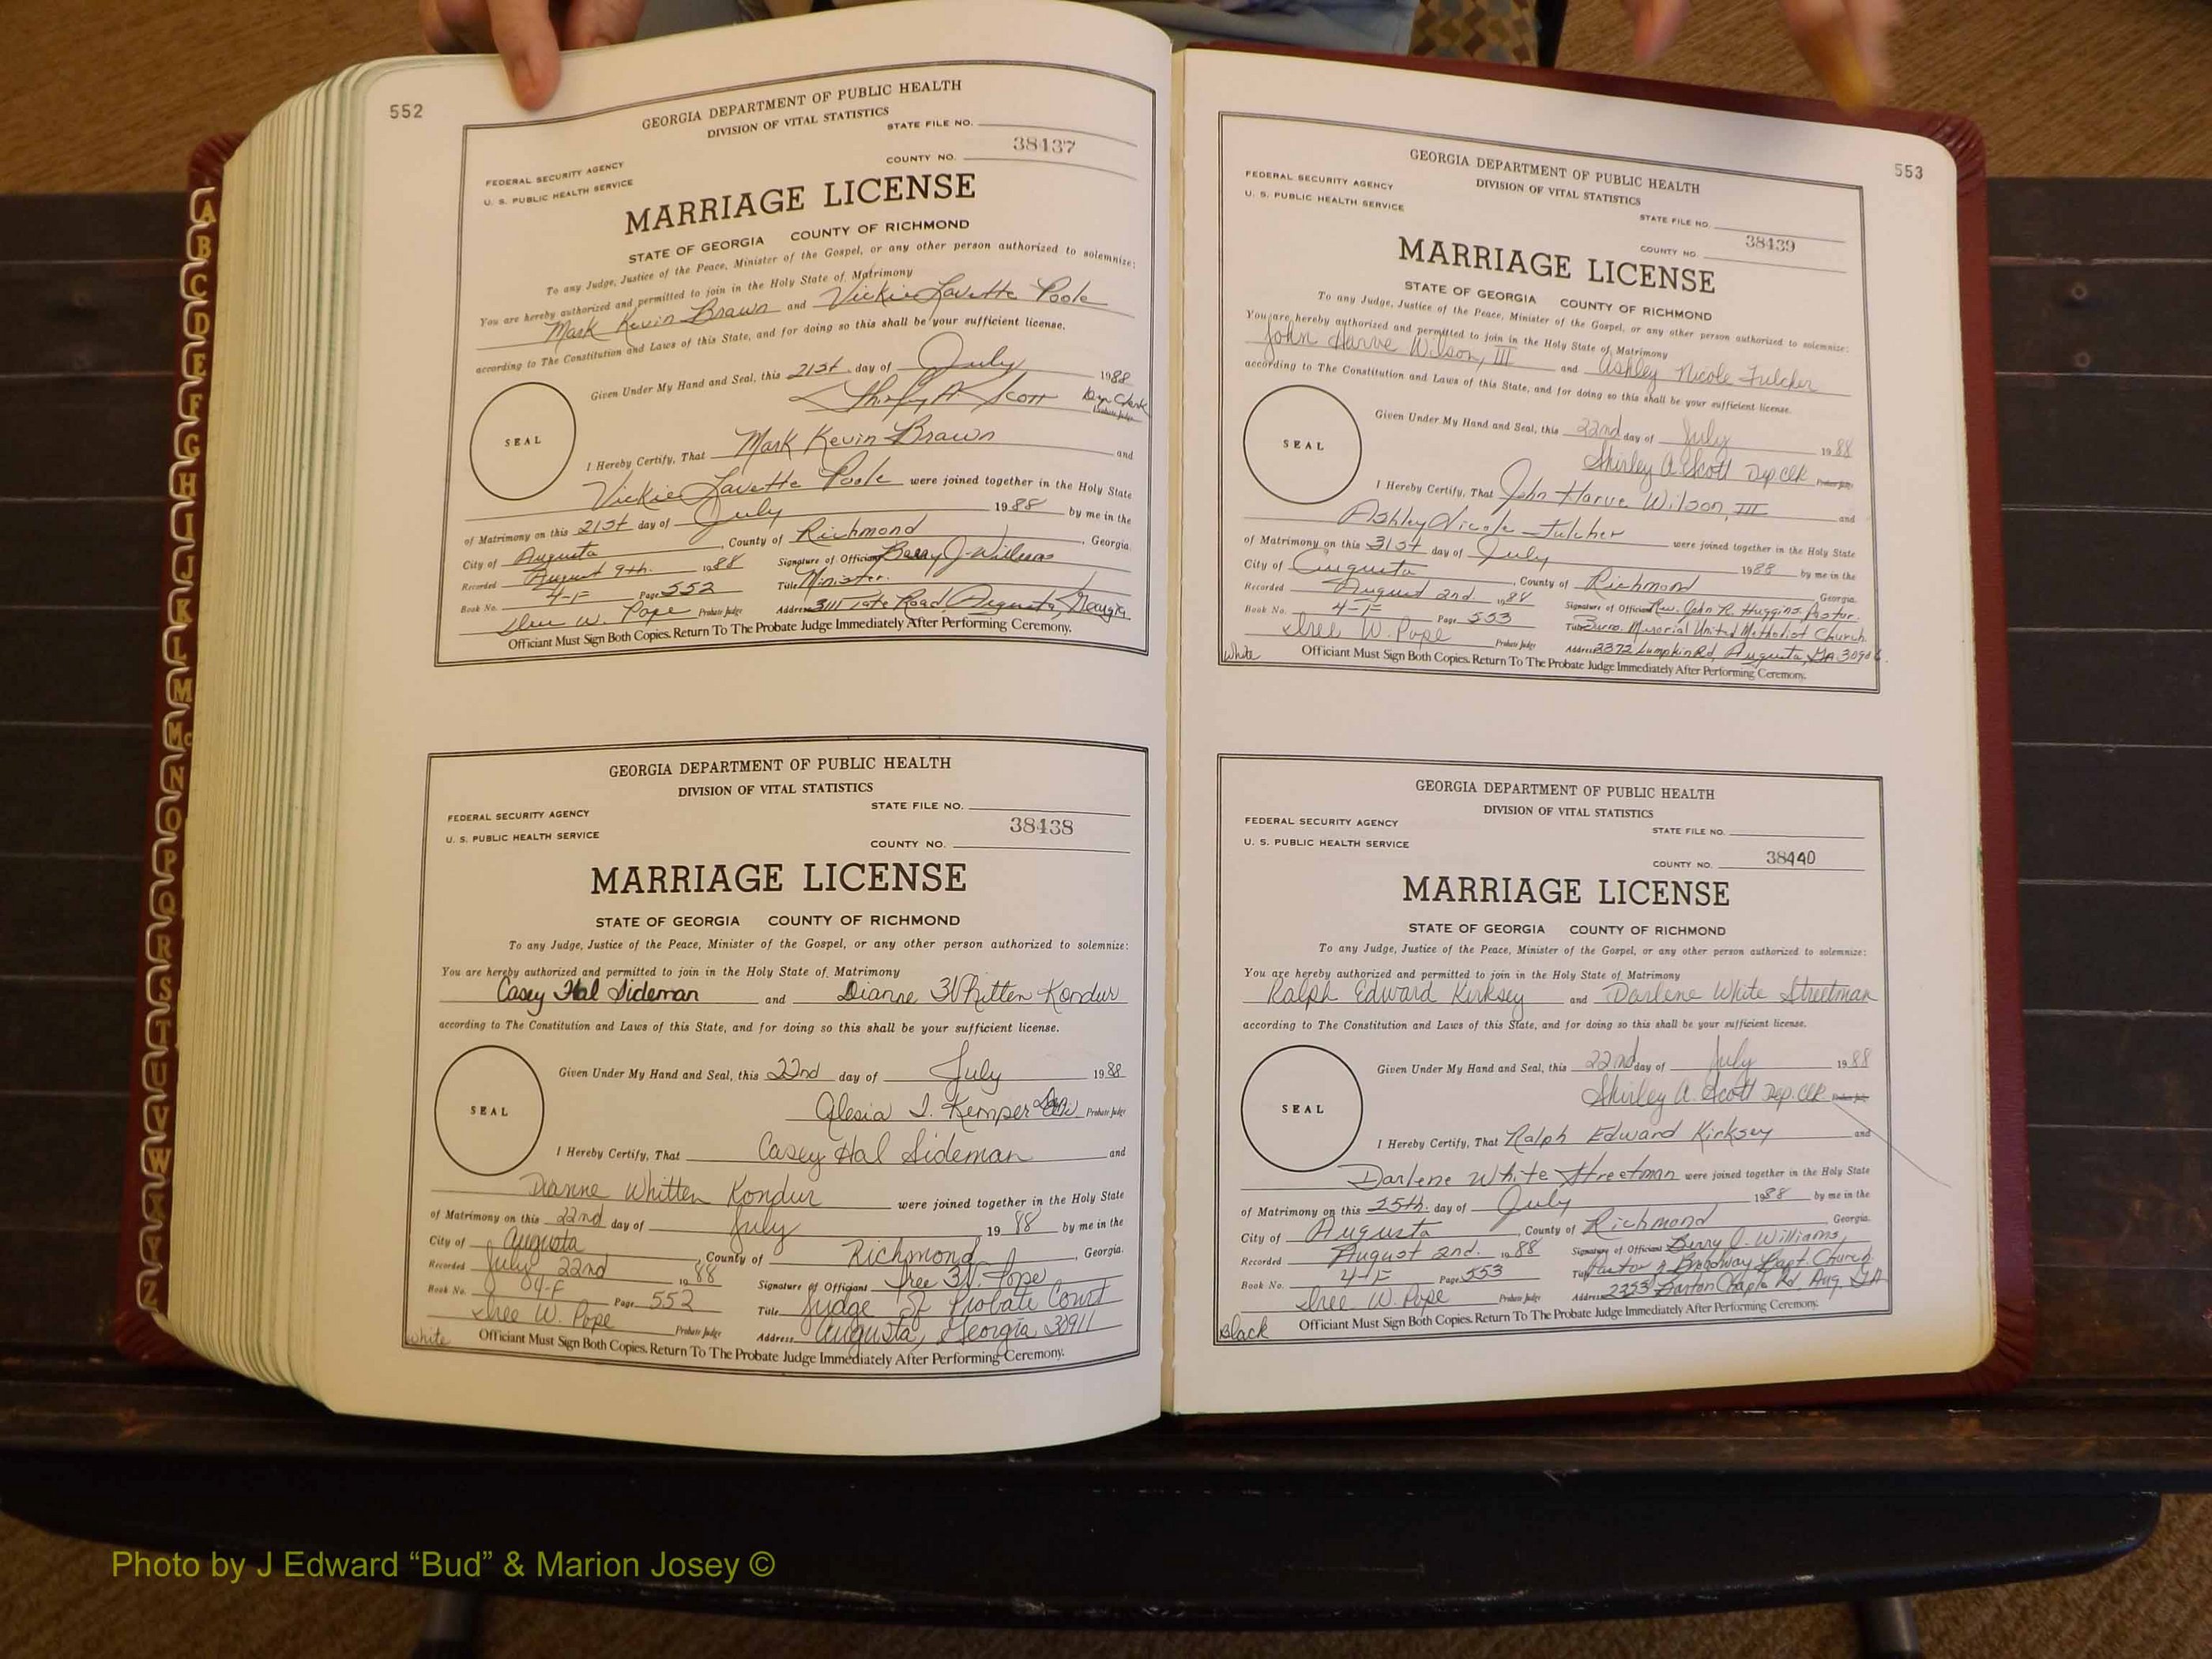 552
GEORGIA DEPARTMENT OF PUBLIC HEALTH
DIVISION OF VITAL STATISTICS
STATE FILE NO.
38437
COUNTY NO.
FEDERAL SECURITY AGENCY
U. S. PUBLIC HEALTH SERVICE
MARRIAGE LICENSE
STATE OF GEORGIA COUNTY OF RICHMOND
To any Judge, Justice of the Peace, Minister of the Gospel, or any other person authorized to solemnize:
You are hereby authorized and permitted to join in the Holy State of Matrimony
Mark Kevin Brawn and Vickie Lavette Poole
according to The Constitution and Laws of this State, and for doing so this shall be your sufficient license.
Given Under My Hand and Seal, this 21st day of July 1988
Shirley A Scott Dep Clerk Probate Judge
SEAL
I Hereby Certify, That Mark Kevin Brawn and
Vickie Lavette Poole were joined together in the Holy State
of Matrimony on this 21st day of July 1988 by me in the
City of Augusta, County of Richmond, Georgia.
Recorded August 9th. 1988 Signature of Officiant J. Williams
Book No. 4-F Page 552 Title Minister.
W. Pope Probate Judge Address 3111 Tate Road, Augusta, Georgia
Officiant Must Sign Both Copies. Return To The Probate Judge Immediately After Performing Ceremony.
GEORGIA DEPARTMENT OF PUBLIC HEALTH
DIVISION OF VITAL STATISTICS
STATE FILE NO.
FEDERAL SECURITY AGENCY
38438
U. S. PUBLIC HEALTH SERVICE
COUNTY NO.
MARRIAGE LICENSE
STATE OF GEORGIA COUNTY OF RICHMOND
To any Judge, Justice of the Peace, Minister of the Gospel, or any other person authorized to solemnize:
You are hereby authorized and permitted to join in the Holy State of Matrimony
Casey Hal Sideman and Dianne Whitten Kondur
according to The Constitution and Laws of this State, and for doing so this shall be your sufficient license.
Given Under My Hand and Seal, this 22nd day of July 1988
Kemper Probate Judge
SEAL
I Hereby Certify, That Casey Hal Sideman and
Dianne Whitten Kondur were joined together in the Holy State
of Matrimony on this 22nd day of July 1988 by me in the
City of Augusta, County of Richmond, Georgia.
Recorded July 22nd 1988 Signature of Officiant W. Pope
Book No. 04-F Page 552 Title Judge of Probate Court
W. Pope Probate Judge Address Augusta, Georgia 30911
White Officiant Must Sign Both Copies. Return To The Probate Judge Immediately After Performing Ceremony.
553
GEORGIA DEPARTMENT OF PUBLIC HEALTH
DIVISION OF VITAL STATISTICS
FEDERAL SECURITY AGENCY
U. S. PUBLIC HEALTH SERVICE
STATE FILE NO.
38439
COUNTY NO.
MARRIAGE LICENSE
STATE OF GEORGIA COUNTY OF RICHMOND
To any Judge, Justice of the Peace, Minister of the Gospel, or any other person authorized to solemnize:
You are hereby authorized and permitted to join in the Holy State of Matrimony
John Harve Wilson, III and Ashley Nicole Fulcher
according to The Constitution and Laws of this State, and for doing so this shall be your sufficient license.
Given Under My Hand and Seal, this 22nd day of July 1988
Shirley A. Scott Dep Clk Probate Judge
SEAL
I Hereby Certify, That John Harve Wilson, III and
Ashley Nicole Fulcher were joined together in the Holy State
of Matrimony on this 31st day of July 1988 by me in the
City of Augusta, County of Richmond Georgia.
Recorded August 2nd. 1988 Signature of Officiant Rev. John R. Huggins, Pastor.
Book No. 4-F Page 553 Title Memorial United Methodist Church
W. Pope Probate Judge Address 2372 Lumpkin Rd, Augusta, GA 30906.
White Officiant Must Sign Both Copies. Return To The Probate Judge Immediately After Performing Ceremony.
GEORGIA DEPARTMENT OF PUBLIC HEALTH
DIVISION OF VITAL STATISTICS
FEDERAL SECURITY AGENCY
STATE FILE NO.
U. S. PUBLIC HEALTH SERVICE
COUNTY NO. 38440
MARRIAGE LICENSE
STATE OF GEORGIA COUNTY OF RICHMOND
To any Judge, Justice of the Peace, Minister of the Gospel, or any other person authorized to solemnize:
You are hereby authorized and permitted to join in the Holy State of Matrimony
Ralph Edward Kirksey and Darlene White Streetman
according to The Constitution and Laws of this State, and for doing so this shall be your sufficient license.
Given Under My Hand and Seal, this 22nd day of July 1988
Shirley A. Scott Dep. Clk Probate Judge
SEAL
I Hereby Certify, That Ralph Edward Kirksey and
Darlene White Streetman were joined together in the Holy State
of Matrimony on this 25th. day of July 1988 by me in the
City of Augusta, County of Richmond Georgia.
Recorded August 2nd. 1988 Signature of Officiant Berry J. Williams,
Book No. 4-F Page 553 Title Pastor of Broadway Bapt. Church
W. Pope Probate Judge Address 2353 Barton Chapel Rd, Aug. GA
Black Officiant Must Sign Both Copies. Return To The Probate Judge Immediately After Performing Ceremony.
A
B
C
D
E
F
G
H
I
J
K
L
M
Mc
N
O
P
Q
R
S
T
U
V
W
X
Y
Z
Photo by J Edward “Bud” & Marion Josey ©